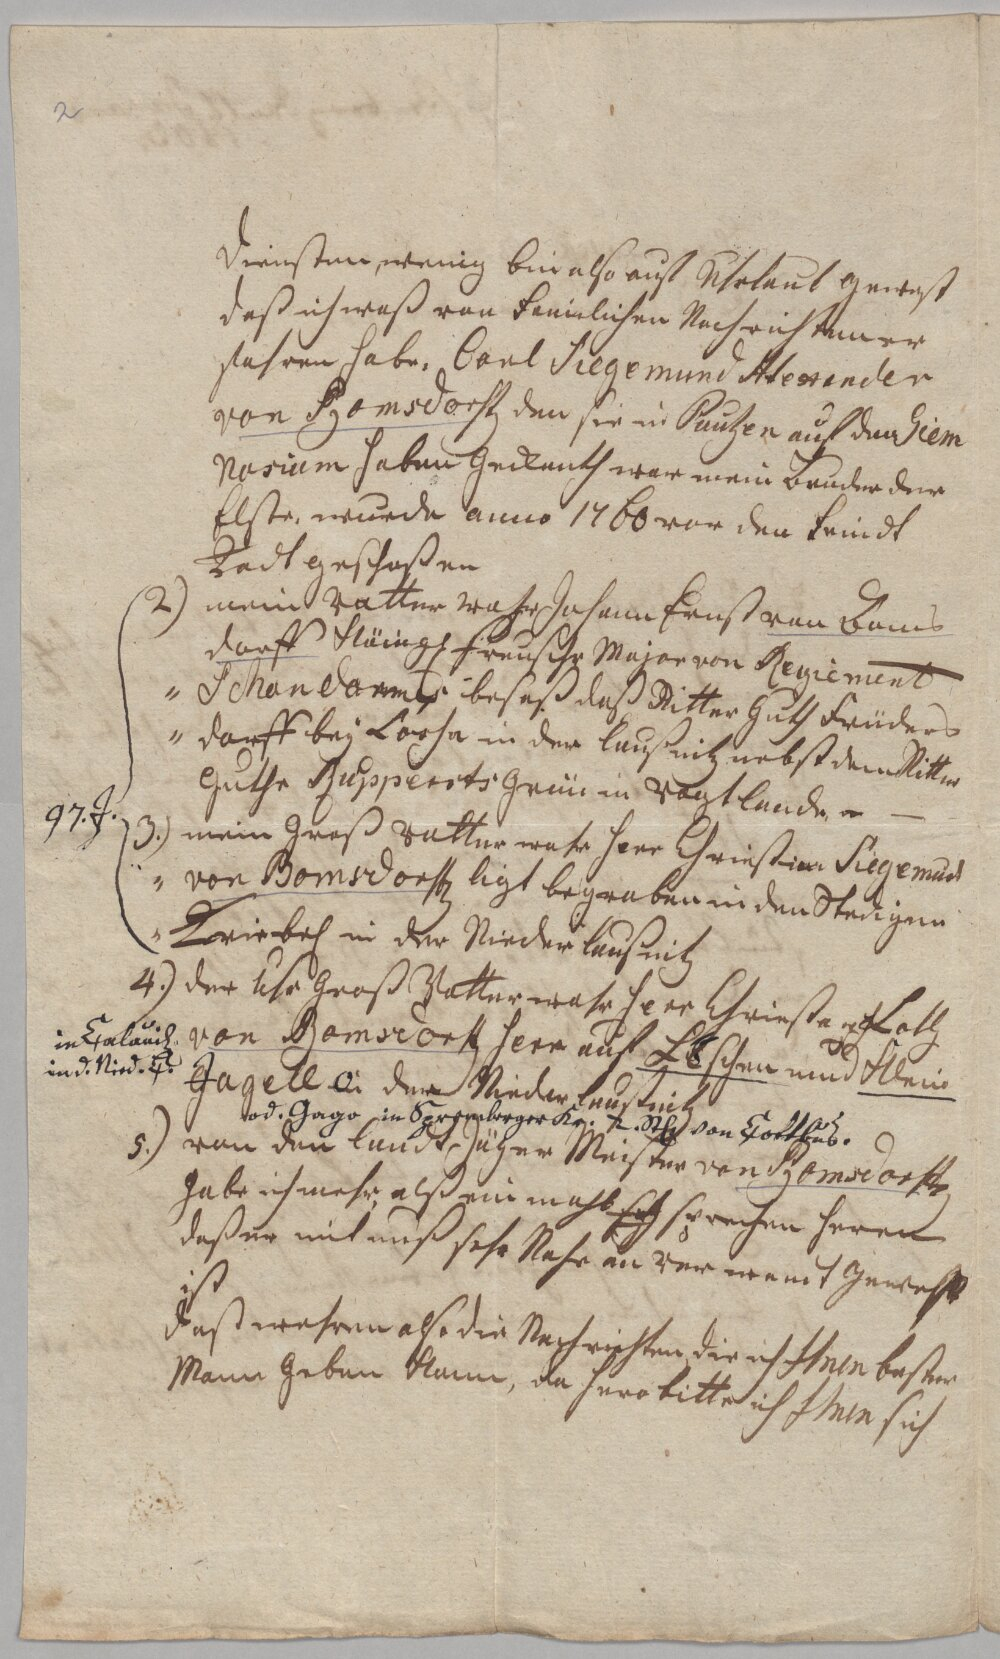 2
Diensten, wenig bin also auf Uhrlaub gewest
daß ich waß von Feimlichen Nachrichten er
fahren habe. Carl Siegemund Alexander
von Bomsdorff den sie in Pautzen auf dem Giem
nasium haben Gekanth war mein Bruder der
Elste, wurde anno 1760 vor den Feindt
Todt geschoßen
2) mein Vatter wahr Johann Ernst von Boms
dorff Köingl Preuscher Major von Regiement
" Schandarmes besaß daß Ritter Guth Früders
" dorff bey Locha in der Laußnitz nebst dem Ritter
Guthe Ruppertsgrün in Vogtlande
97. J.
3.) mein Groß Vatter wahr Herr Christian Siegemund
" von Bomsdorff ligt begraben in den Stedigen
" Triebel in der Nieder Laußnitz
4.) der Uhr Groß Vatter wahr Herr Christoph
in Calauisch.
in d. Nied. L.
von Bomsdorff Herr auf Löschen und Klein
Jagello in der Nieder Laußnitz
od. Gago in Spremberger Kr. von Cottbus.
5.) von den Landt Jäger Meister von Bomsdorff
habe ich mehr alß ein mahl sprechen heren
daß er mit unß sehr Nahe an ver wandt Gewest
ist
daß wehren also die Nachrichten die ich Ihnen bester
Mann Geben Kann, da hero bitte ich Ihnen sich